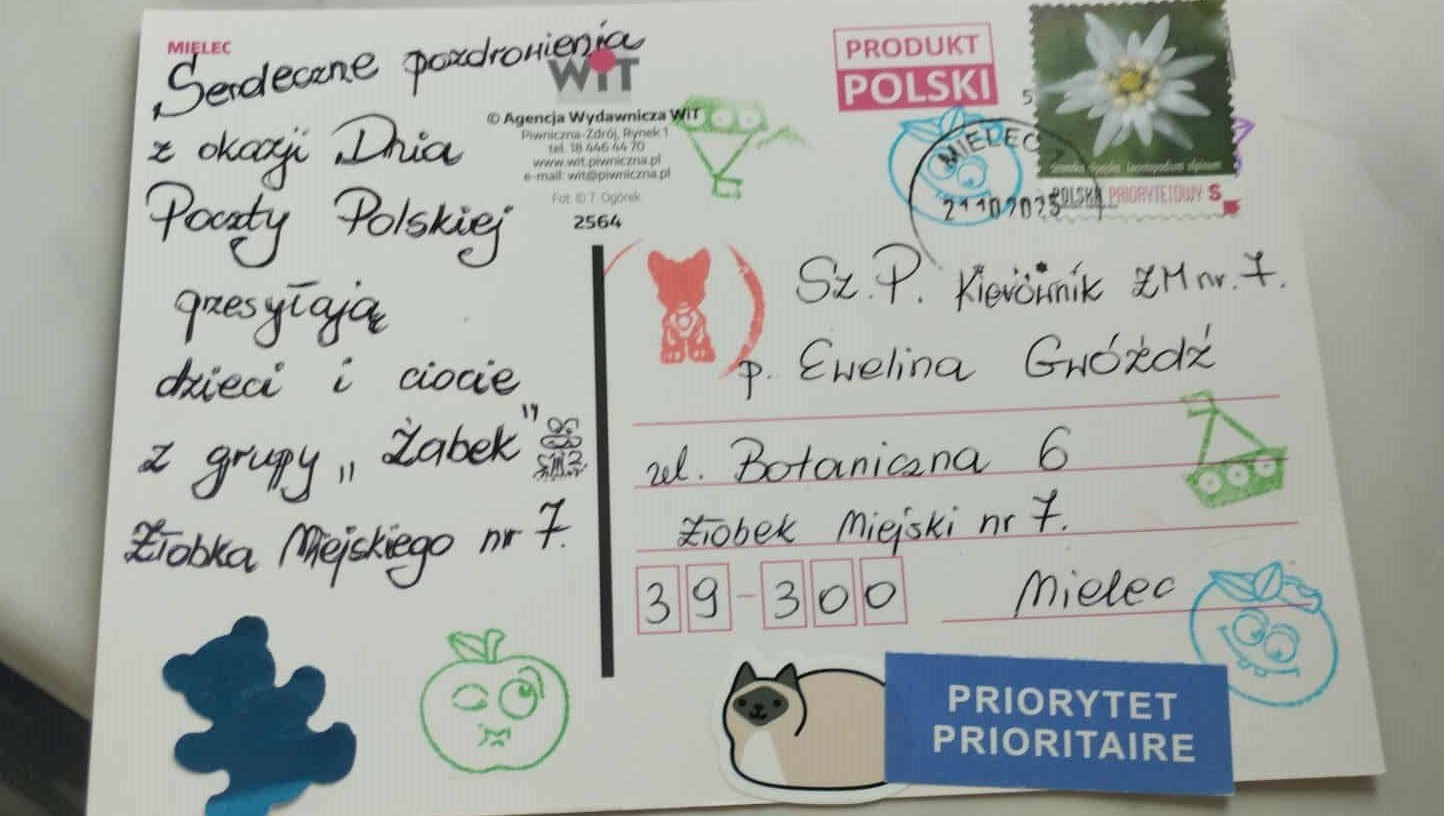 MIELEC
Serdeczne pozdrowienia
z okazji Dnia
Poczty Polskiej
przesyłają
dzieci i ciocie
z grupy „Żabek"
Żłobka Miejskiego nr 7.
WiT
© Agencja Wydawnicza WiT
Piwniczna-Zdrój, Rynek 1
tel. 18 446 44 70
www.wit.piwniczna.pl
e-mail: wit@piwniczna.pl
Fot. © T. Ogórek
2564
PRODUKT
POLSKI
MIELEC
21 10 2025
POLSKA PRIORYTETOWY S
Sz. P. Kierownik ŻM nr. 7.
p. Ewelina Gwóźdź
ul. Botaniczna 6
Żłobek Miejski nr 7.
39-300 Mielec
PRIORYTET
PRIORITAIRE